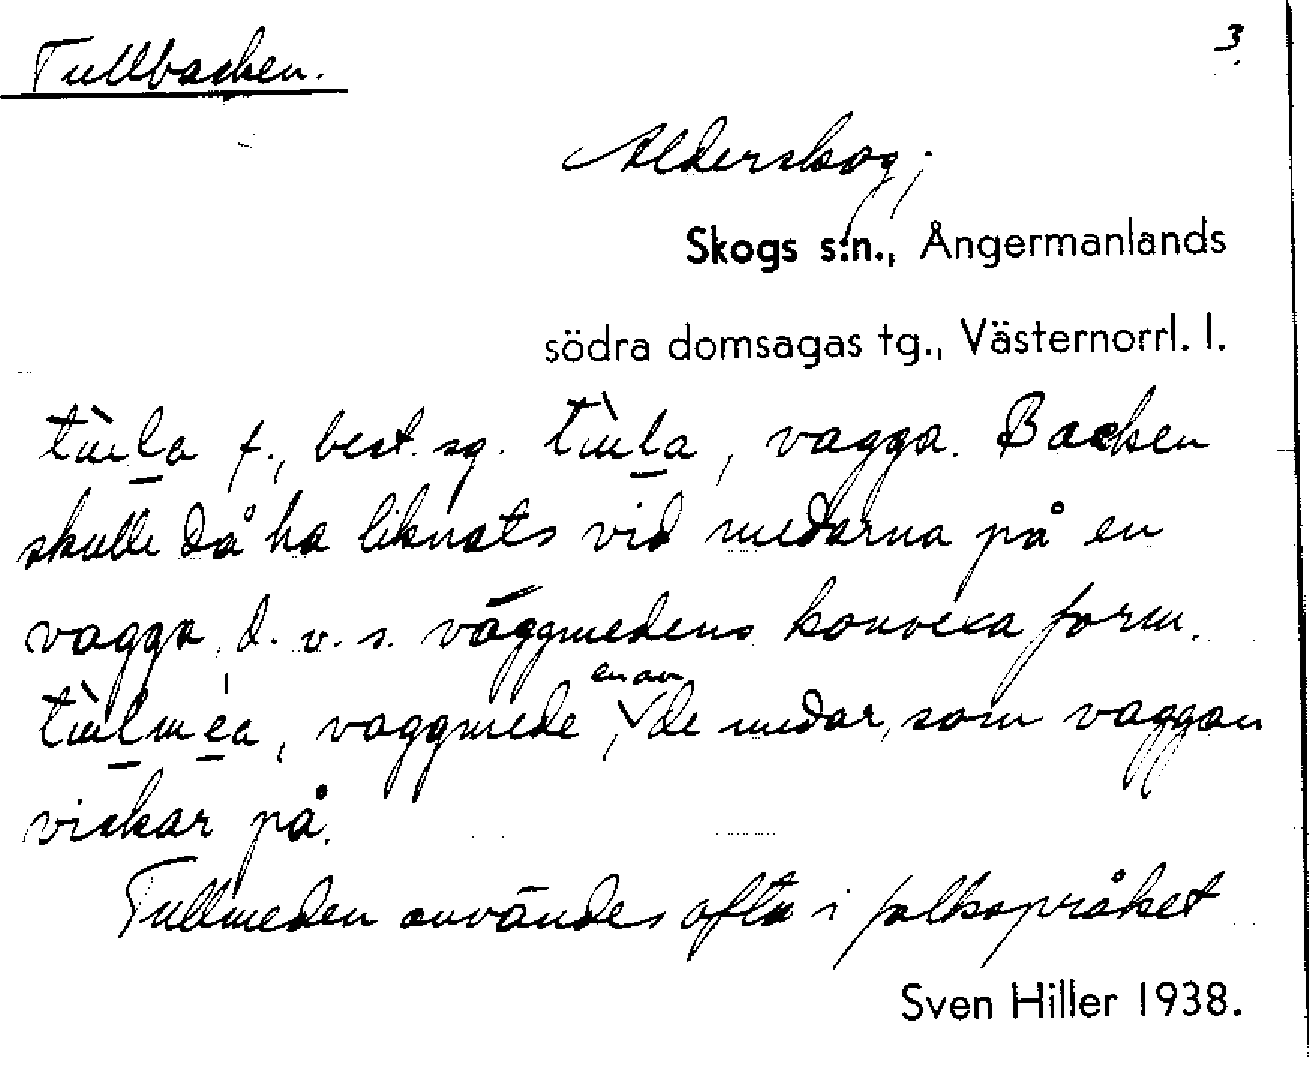 Tullbacken.
3.
Alderskog;
Skogs s:n., Ångermanlands
södra domsagas tg., Västernorrl. l.
f., best. sg. , vagga. Backen
skulle då ha liknats vid medarna på en
vagga, d. v. s. väggmedens konvexa form.
, vaggmede, en av de medar, som vaggan
vickar på.
Tullmeden användes ofta i folkspråket
Sven Hiller 1938.